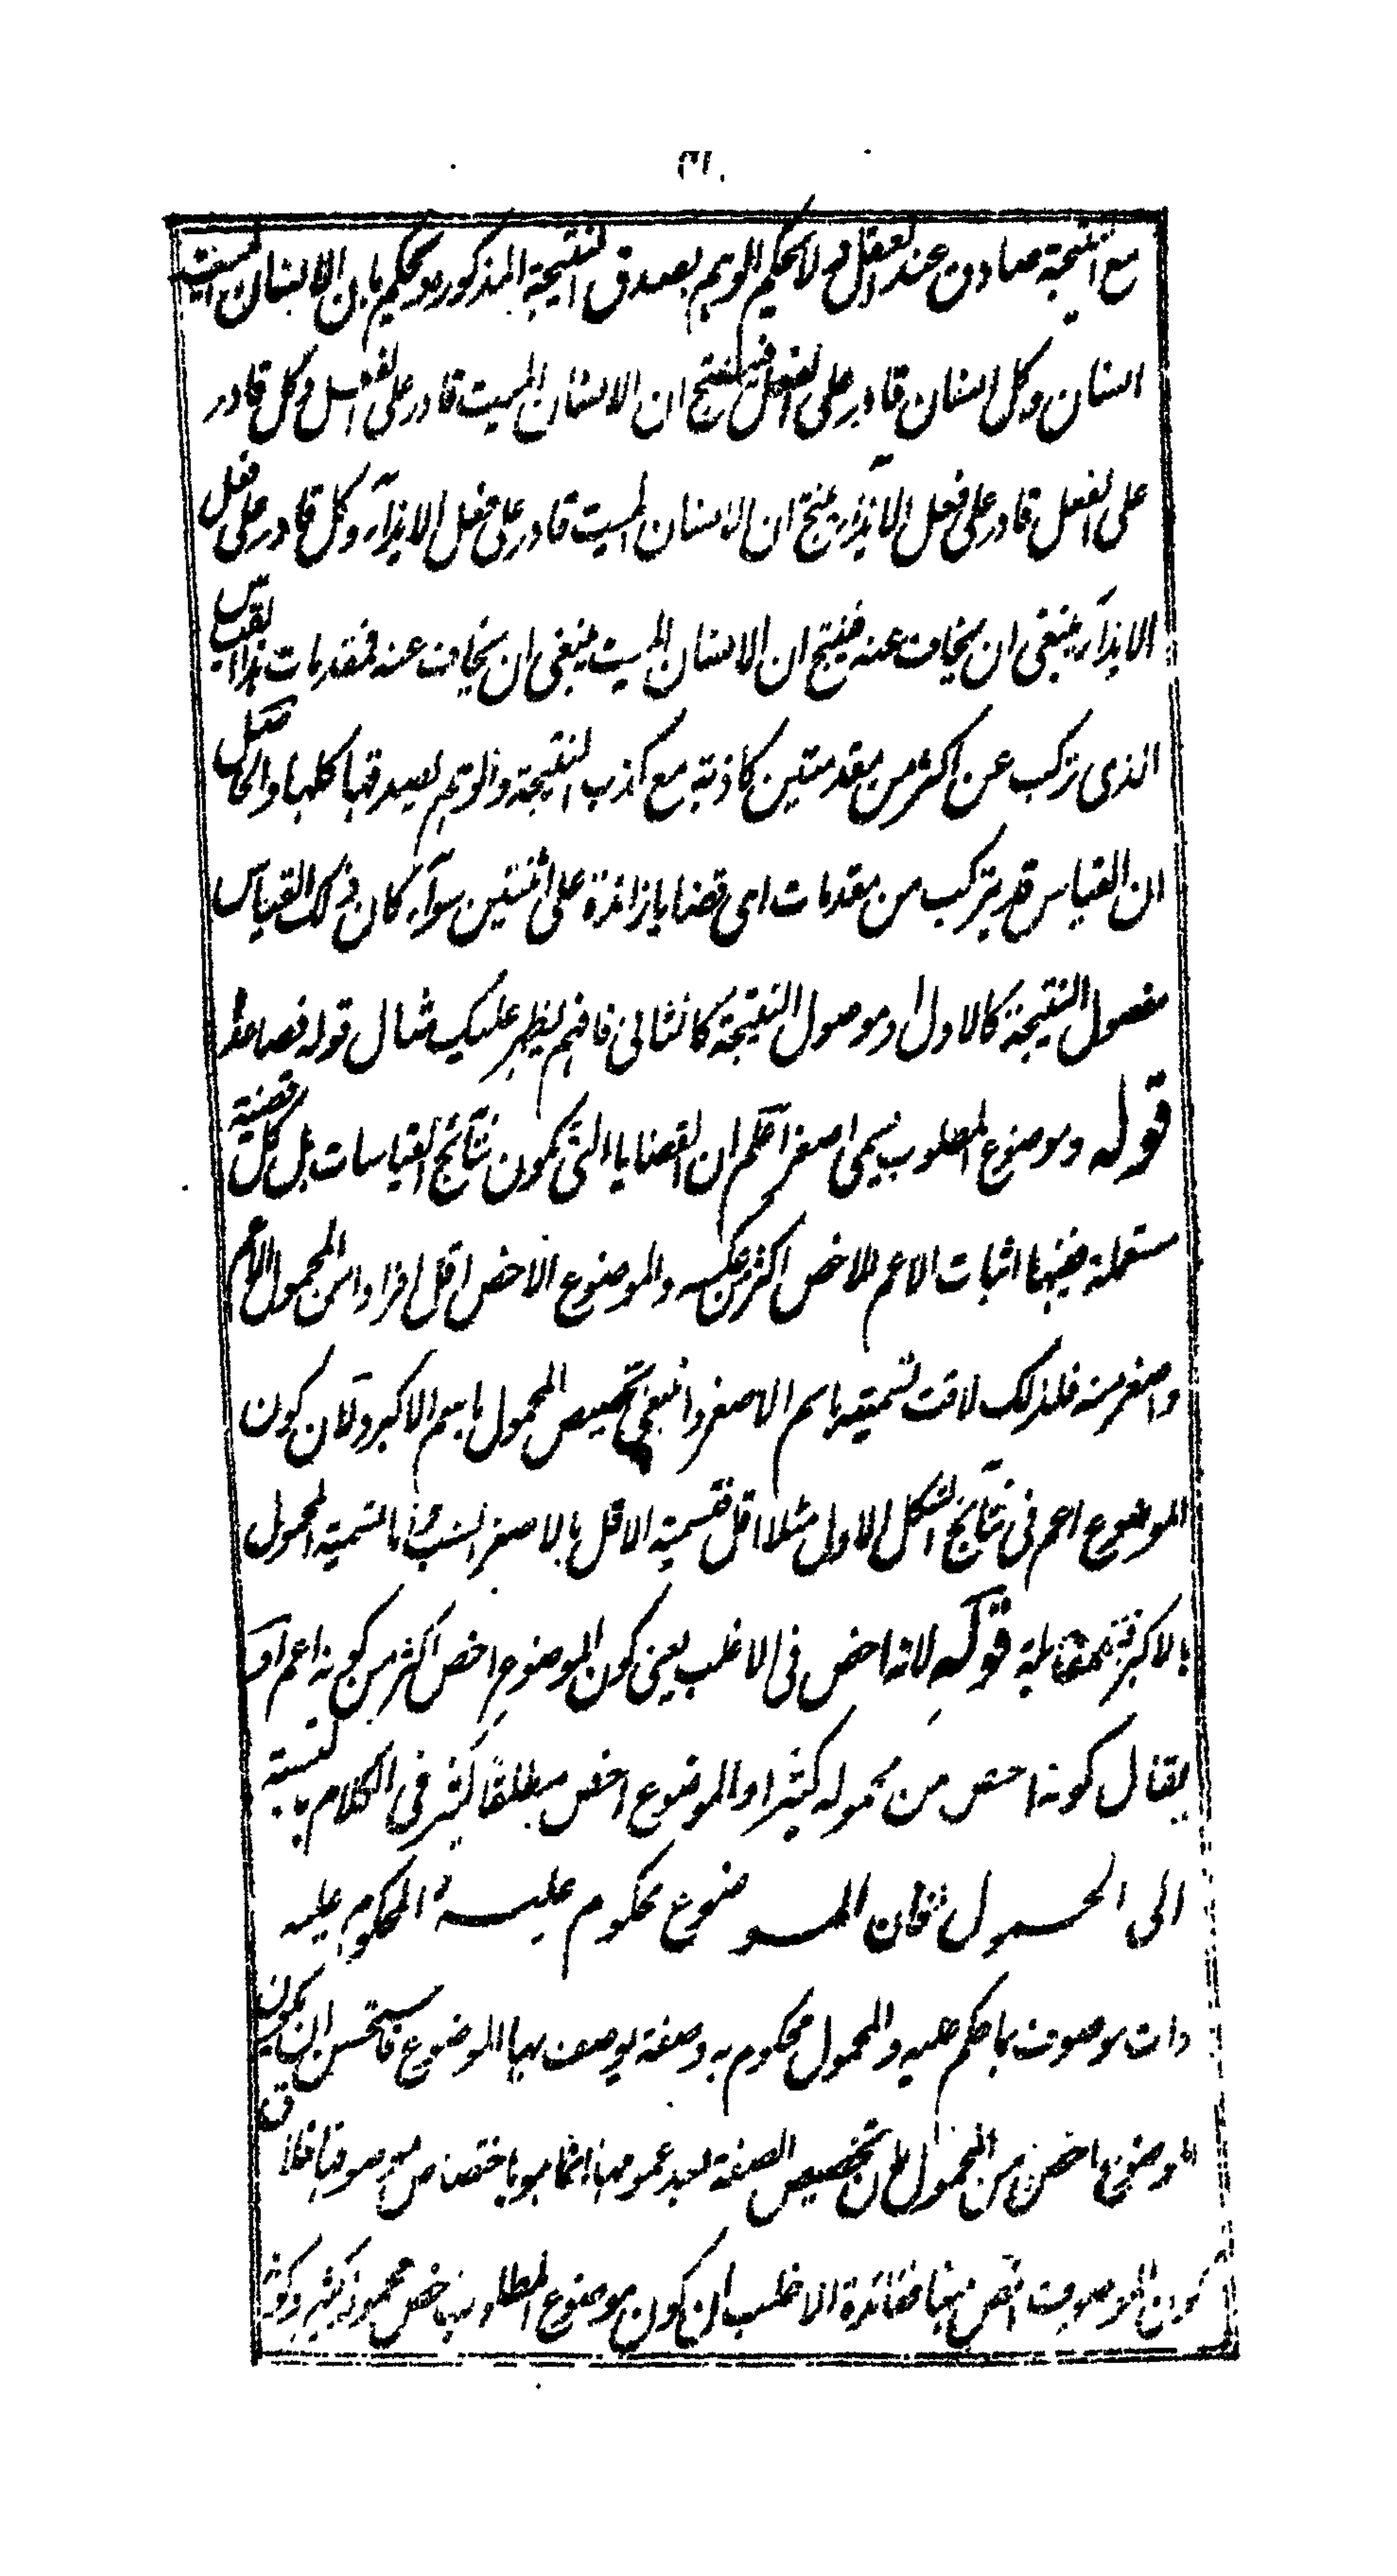 ٣١٠
مع النتيجة صادق عند العقل ولا يحكم الوهم بصدق النتيجة المذكورة ويحكم بان الانسان الميت
انسان وكل انسان قادر على الفعل فينتج ان الانسان الميت قادر على الفعل وكل قادر
على الفعل قادر على فعل الايذآء ينتج ان الانسان الميت قادر على فعل الايذآء وكل قادر على فعل
الايذآء ينبغى ان يخاف عنه فينتج ان الانسان الميت ينبغى ان يخاف عنه فمقدمات هذا القياس
الذى تركب عن اكثر من مقدمتين كاذبة مع كذب النتيجة والوهم يصدقها كلها والحاصل
ان القياس قد يتركب من مقدمات اى قضايا زائدة على اثنتين سوآء كان ذلك القياس
مفصول النتيجة كالاول او موصول النتيجة كالثانى فافهم ليظهر عليك مثال قوله فصاعدا
قوله وموضوع المطلوب يسمى اصغر اعلم ان القضايا التى تكون نتائج القياسات بل كل قضية
مستعملة فيها اثبات الاعم للاخص اكثر من عكسه والموضوع الاخص اقل افرادا من المحمول الاعم
واصغر منه فلذلك لاقت تسميته باسم الاصغر وانبغى تخصيص المحمول باسم الاكبر ولان كون
الموضوع اعم فى نتائج الشكل الاول مثلا اقل فتسمية الاقل بالاصغر انسب واما تسمية المحمول
بالاكبر فبمقابلة قوله لانه اخص فى الاغلب يعنى كون الموضوع اخص اكثر من كونه اعم او
يقال كونه اخص من محموله كثيرا والموضوع اخص مطلقا كثير فى الكلام بالنسبة
الى المحمول فان الموضوع محكوم عليه والمحكوم عليه
ذات موصوف بما حكم عليه والمحمول محكوم به وصفة يوصف بها الموضوع فاستحسن ان يكون
الموضوع اخص من المحمول لان تخصيص الصفة بعد عمومها انما هو باختصاص موصوفها فلاق
كون الموصوف اخص منها ففائدة الاغلب ان كون موضوع المطلوب اخص محموله كثير وكونه